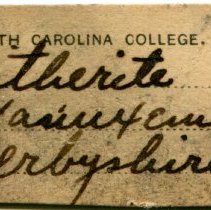 TH CAROLINA COLLEGE.
therite
Vanuxem
erbyshire